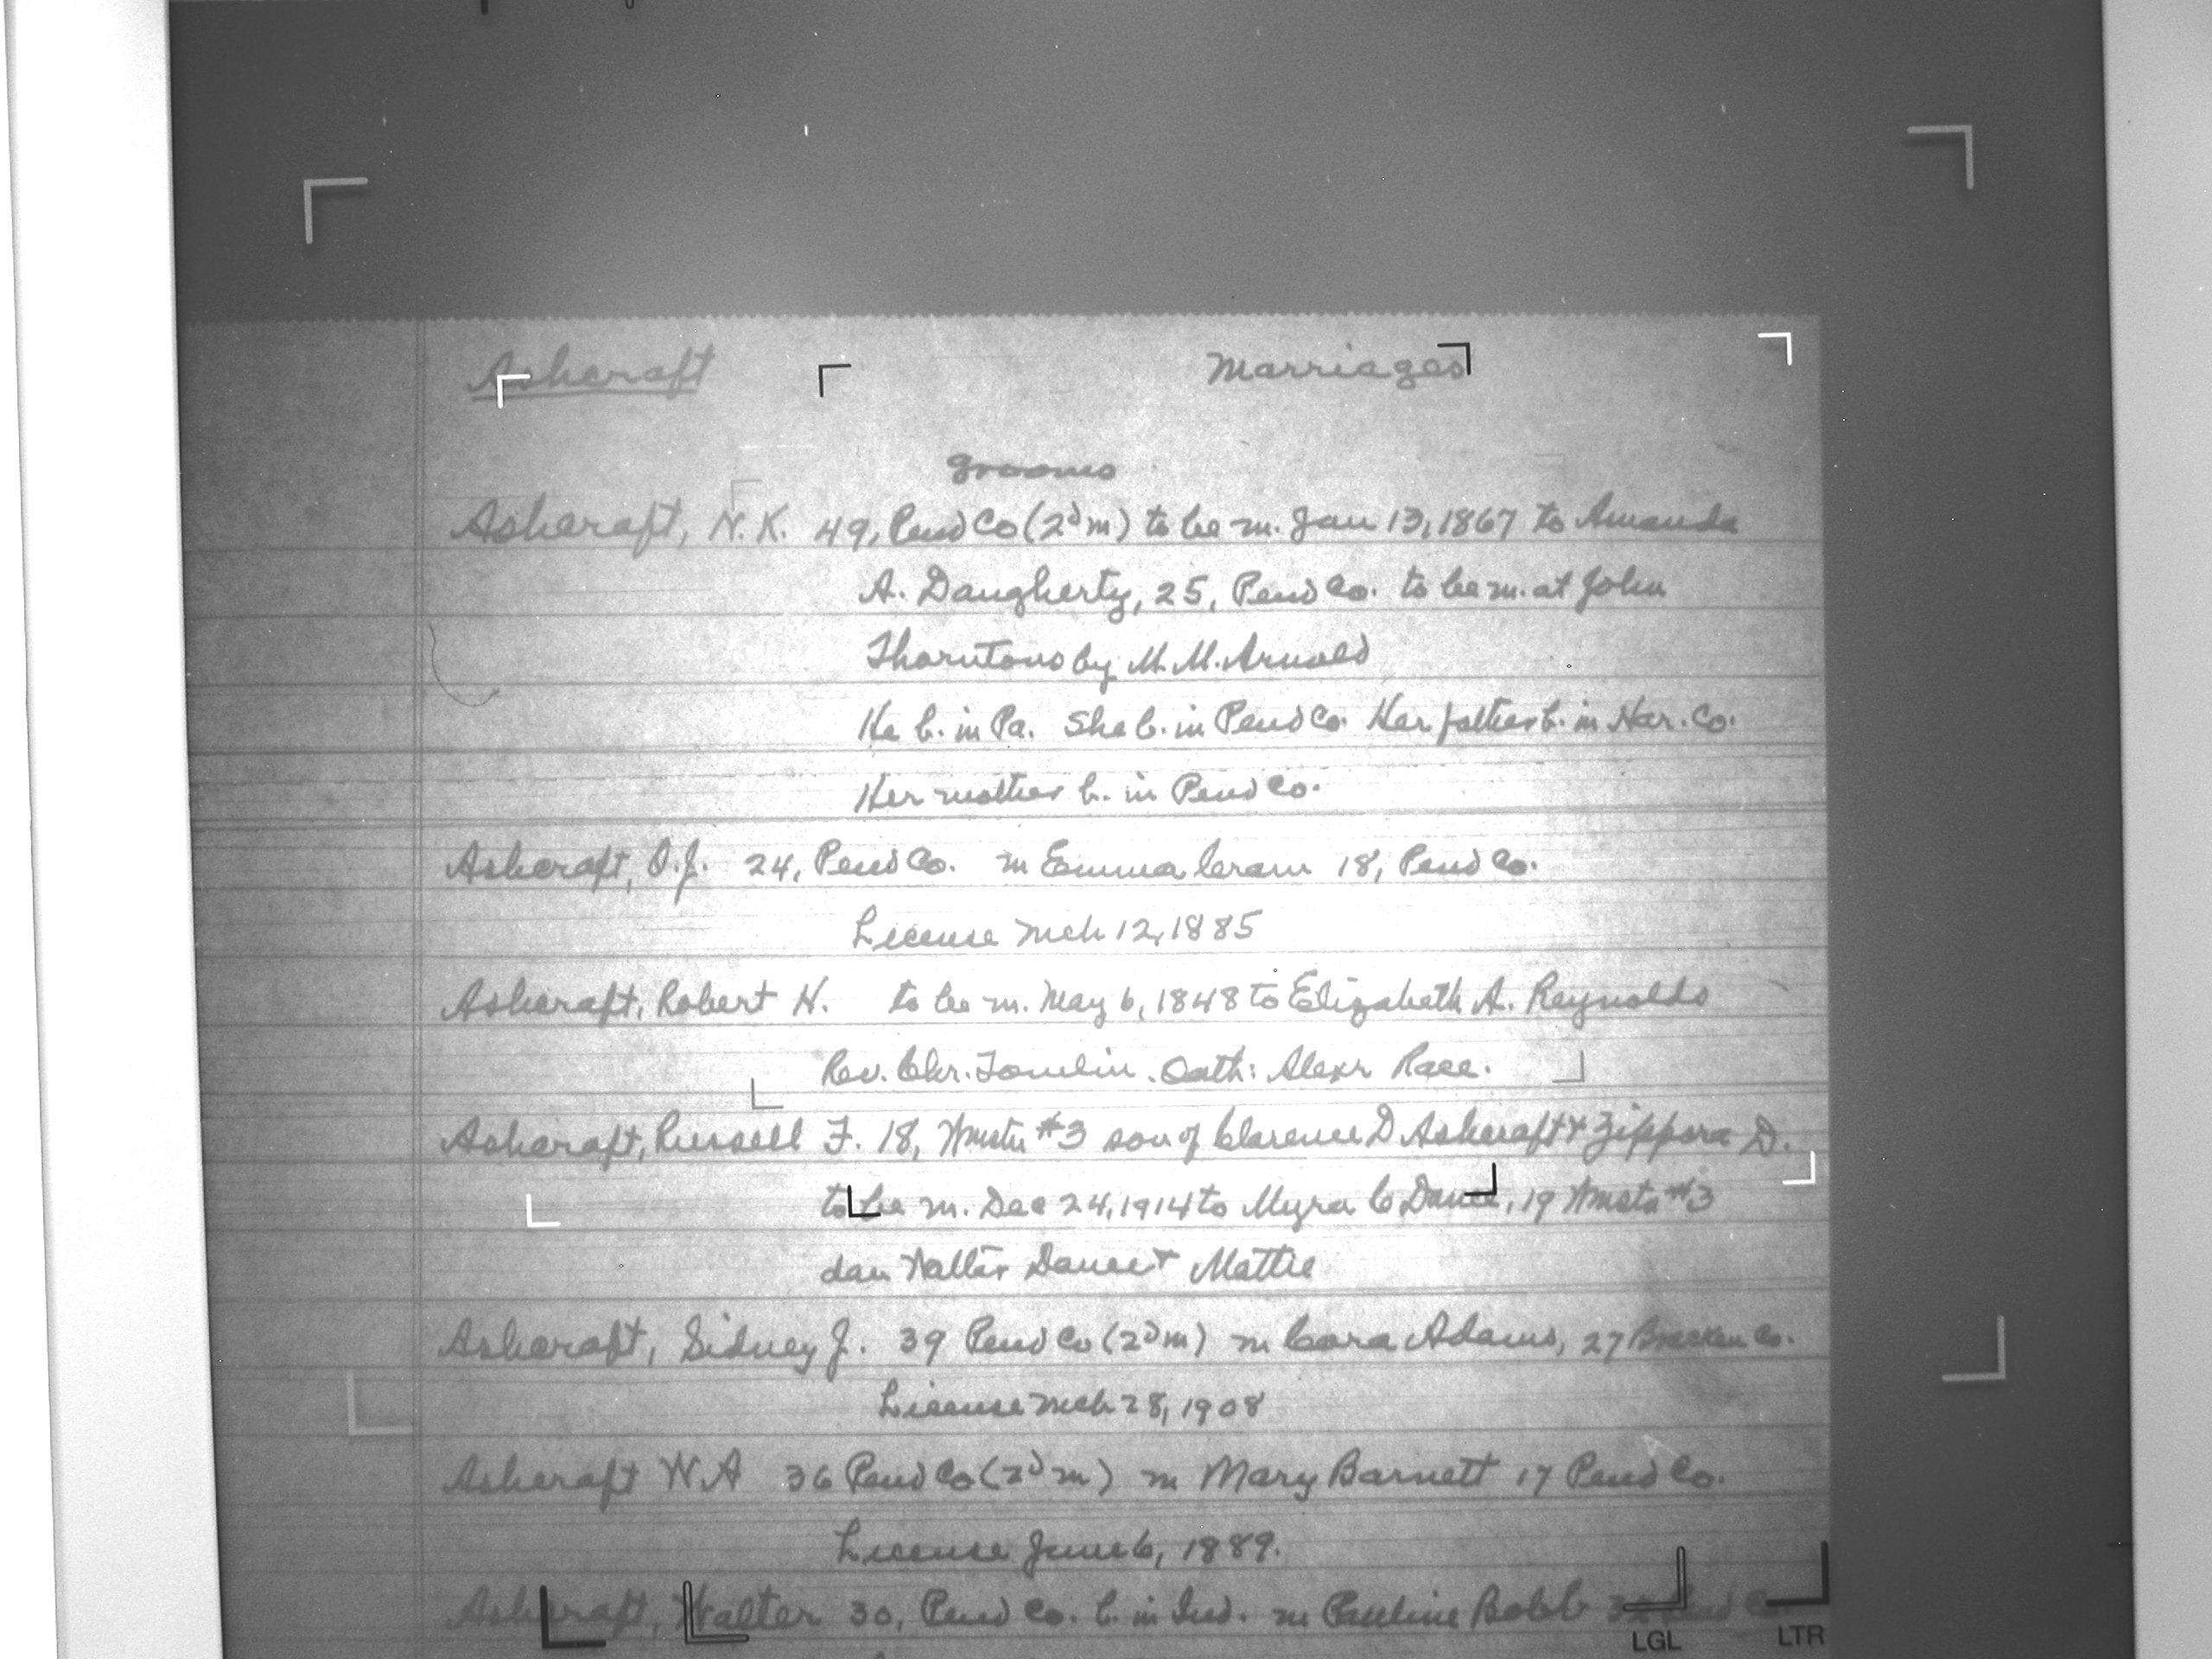 Ashcraft Marriages
Grooms
Ashcraft, N.K. 49, Pend Co (2d m) to be m. Jan 13, 1867 to Amanda
A. Daugherty, 25, Pend Co. to be m. at John
Thorntons by M.M. Arnold
He b. in Pa. She b. in Pend Co. Her father b. in Har. Co.
Her mother b. in Pend Co.
Ashcraft, O.J. 24, Pend Co. m Emma Cram 18, Pend Co.
License Mch 12, 1885
Ashcraft, Robert H. to be m. May 6, 1848 to Elizabeth A. Reynolds
Rev. Chr. Tomlin. Oath: Alexr Race.
Ashcraft, Russell F. 18, Wmstn #3 son of Clarence D Ashcraft & Zippora D.
to be m. Dec 24, 1914 to Myra C Dance, 19 Wmstn #3
dau Walter Dance & Mattie
Ashcraft, Sidney J. 39 Pend Co (2d m) m Cora Adams, 27 Bracken Co.
License Mch 28, 1908
Ashcraft W.A 36 Pend Co (2d m) m Mary Barnett 17 Pend Co.
License June 6, 1889.
Ashcraft, Walter 30, Pend Co. b. in Ind. m Pauline Bobb 32 Pend Co
LGL LTR